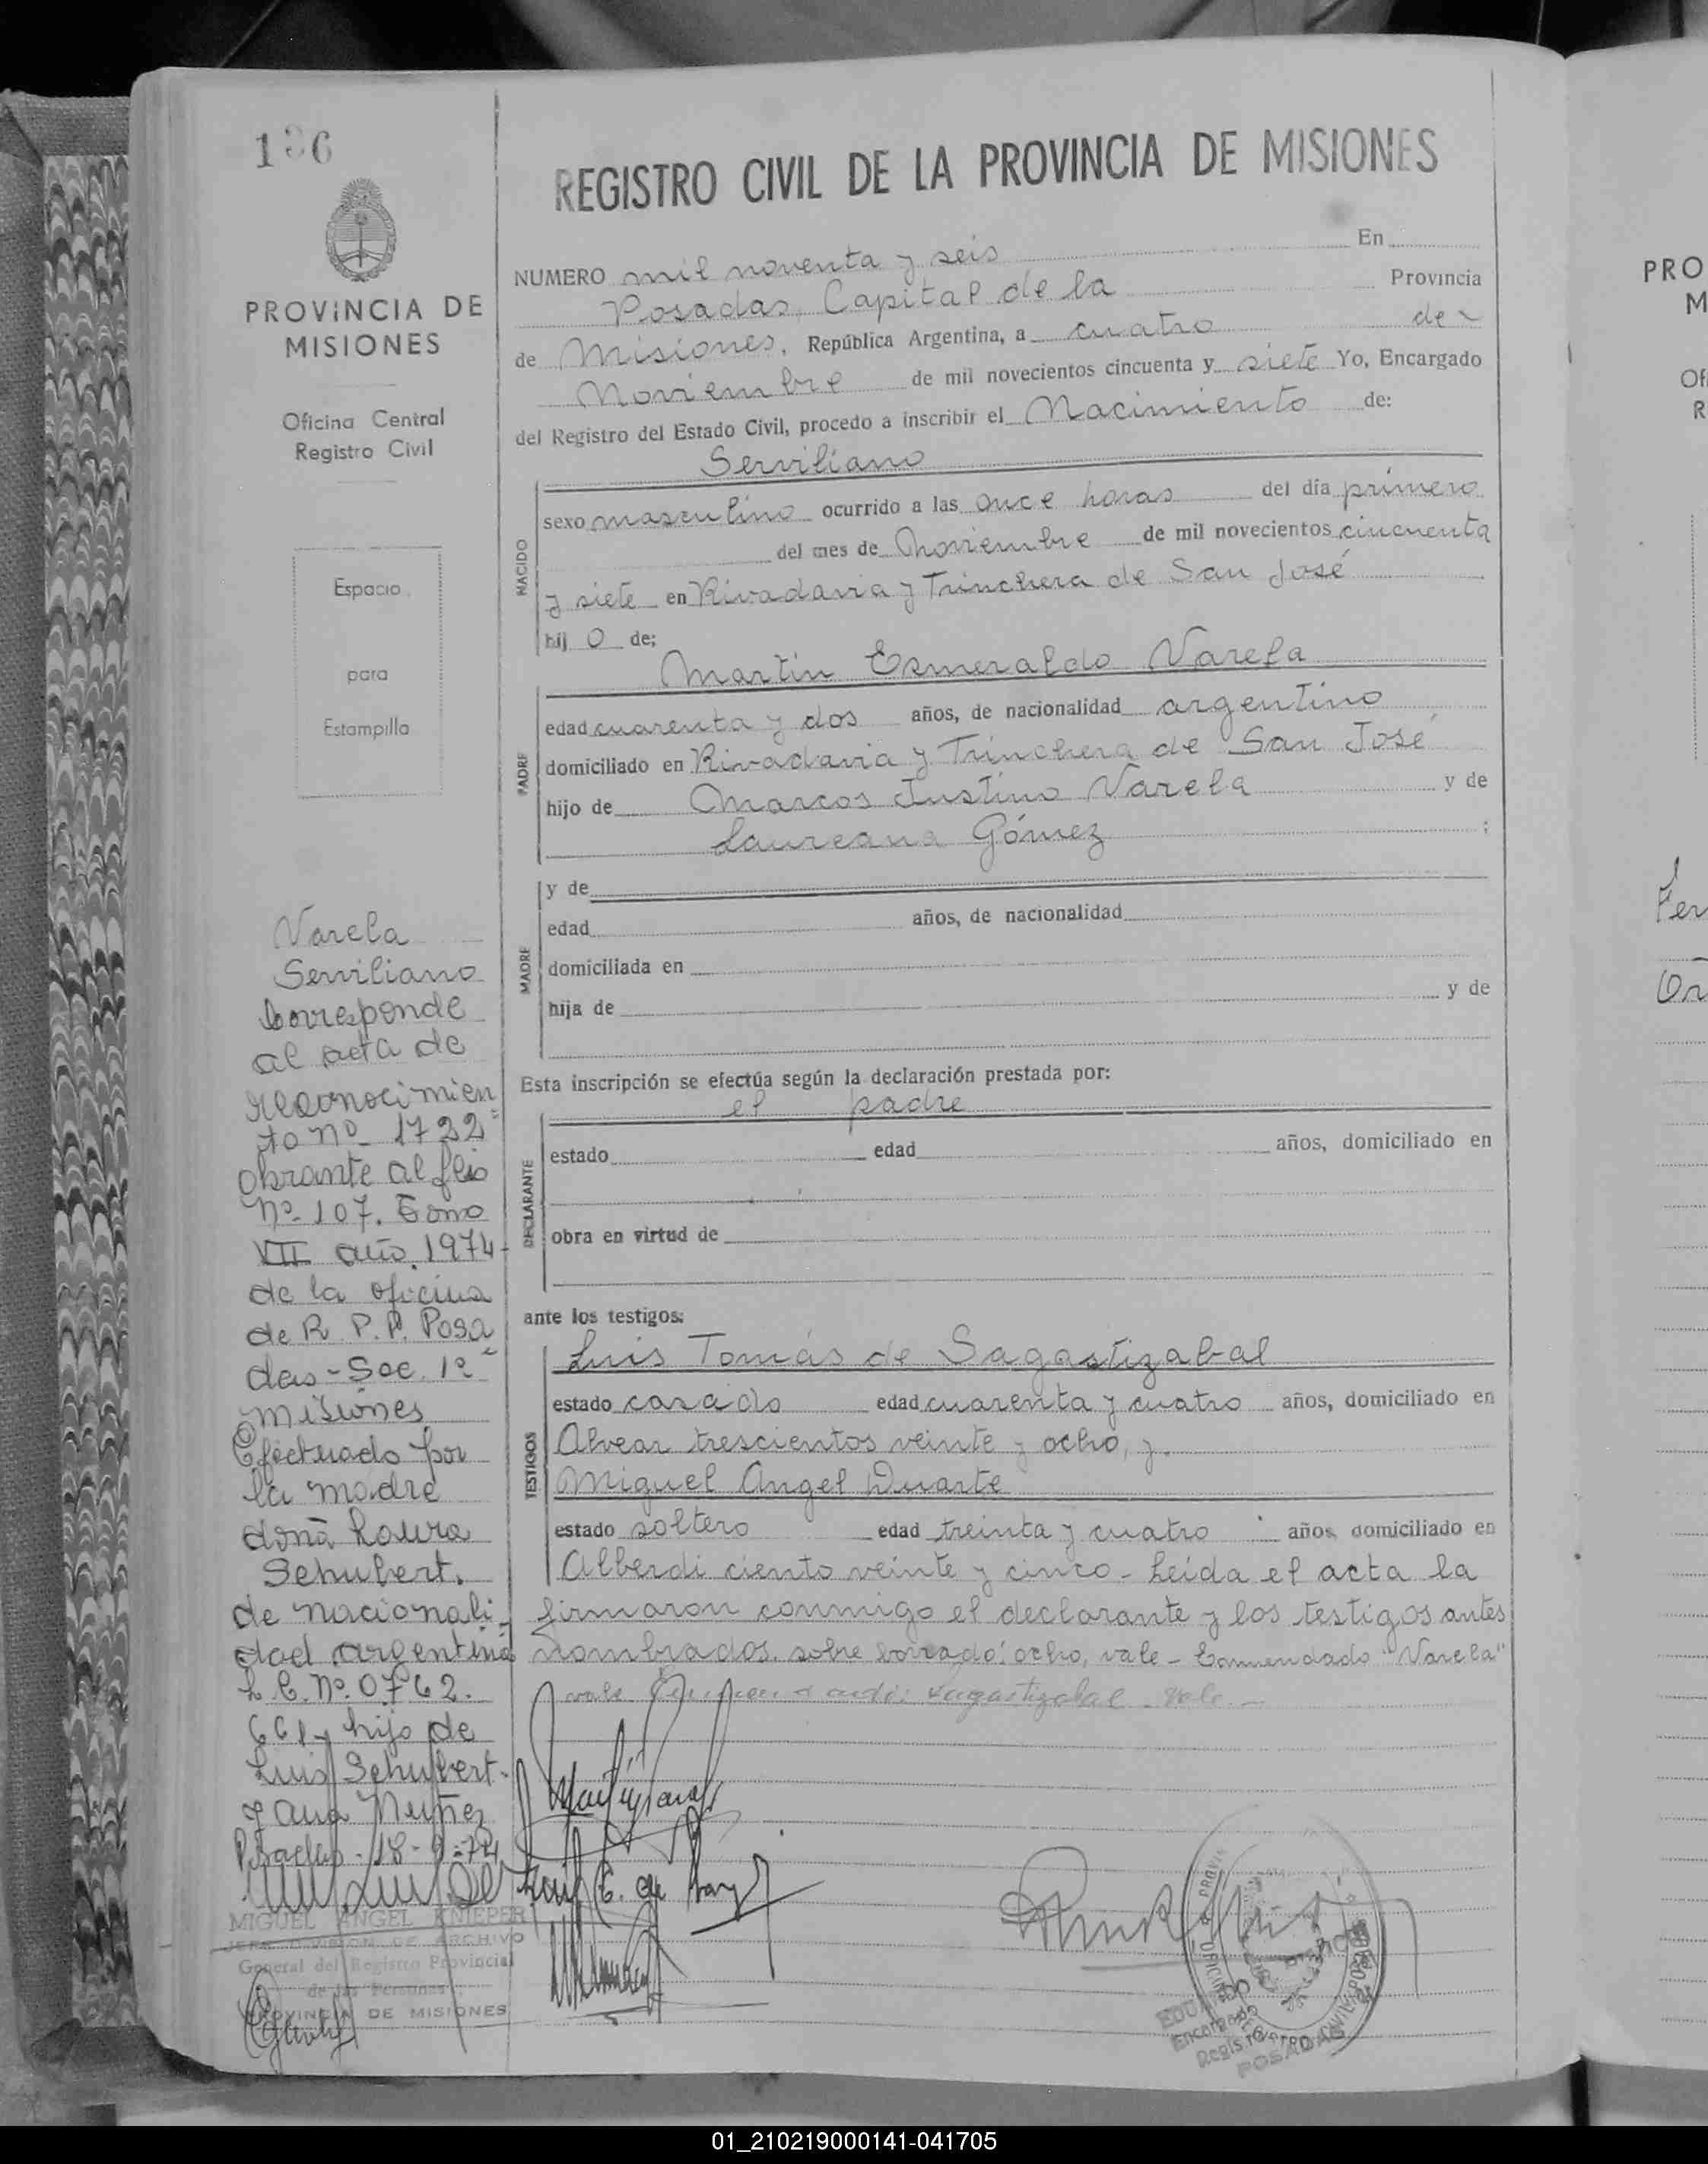 136
PROVINCIA DE
MISIONES
Oficina Central
Registro Civil
Espacio
para
Estampilla
Varela
Serviliano
Corresponde
al acta de
reconocimien
to nº 1722
obrante al flio
Nº 107. Tomo
VII año 1974-
de la oficina
de R. P.P. Posa
das - Sec. 1ª
Misiones
Efectuado por
la madre
doña Laura
Schubert.
de nacionali
dad argentina
L C. Nº. 0762.
661 y hijo de
Luis Schubert-
y Ana Nuñez
Posadas - 18-9-74
MIGUEL ANGEL KNIEPER
JEFE DIVISION DE ARCHIVO
General del Registro Provincial
de las Personas
PROVINCIA DE MISIONES
REGISTRO CIVIL DE LA PROVINCIA DE MISIONES
NUMERO mil noventa y seis En
Posadas, Capital de la Provincia
de Misiones, República Argentina, a cuatro de
Noviembre de mil novecientos cincuenta y siete Yo, Encargado
del Registro del Estado Civil, procedo a inscribir el Nacimiento de:
Serviliano
NACIDO
sexo masculino ocurrido a las once horas del día primero
del mes de Noviembre de mil novecientos cincuenta
y siete en Rivadavia y Trinchera de San José
hij o de;
Martín Esmeraldo Varela
PADRE
edad cuarenta y dos años, de nacionalidad argentino
domiciliado en Rivadavia y Trinchera de San José
hijo de Marcos Justino Varela y de
Laureana Gómez ;
MADRE
y de
edad años, de nacionalidad
domiciliada en
hija de y de
Esta inscripción se efectúa según la declaración prestada por:
el padre
DECLARANTE
estado edad años, domiciliado en
obra en virtud de
ante los testigos:
TESTIGOS
Luis Tomás de Sagastizabal
estado casado edad cuarenta y cuatro años, domiciliado en
Alvear trescientos veinte y ocho, y.
Miguel Angel Duarte
estado soltero edad treinta y cuatro años domiciliado en
Alberdi ciento veinte y cinco - Leída el acta la
firmaron conmigo el declarante y los testigos antes
nombrados. sobre borrado: ocho, vale - Enmendado "Varela"
vale Sagastizabal . Vale. -
Encargado
Registro
POSADAS
PRO
M
Ofi
R
Fer
01_210219000141-041705